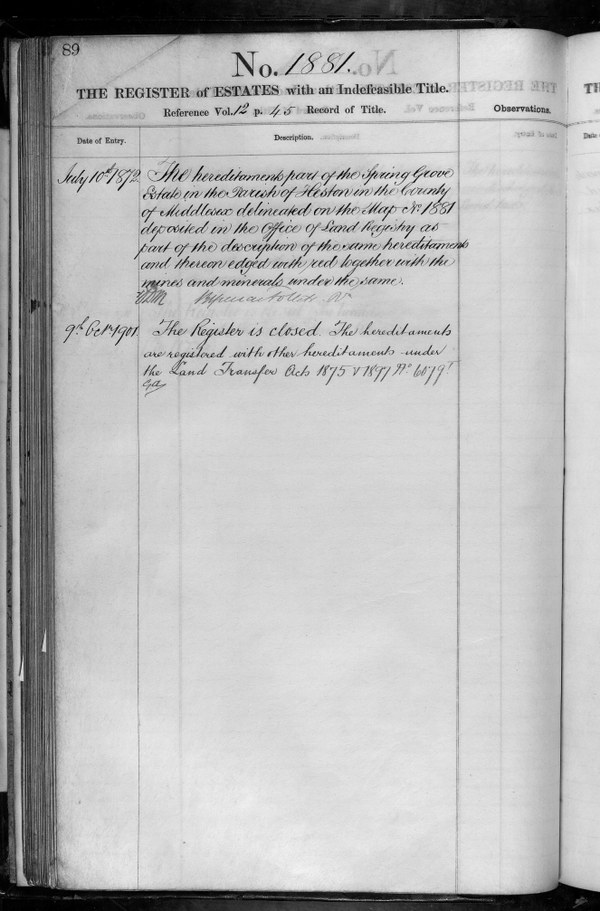 89
No. 1881.
THE REGISTER of ESTATES with an Indefeasible Title.
Reference Vol. 12 p. 45 Record of Title.
Observations.
Date of Entry.
Description.
July 10th 1872
The hereditaments part of the Spring Grove
Estate in the Parish of Heston in the County
of Middlesex delineated on the Map No. 1881
deposited in the Office of Land Registry as
part of the description of the same hereditaments
and thereon edged with red together with the
mines and minerals under the same.
9th Octr. 1901.
The Register is closed. The hereditaments
are registered with other hereditaments under
the Land Transfer Acts 1875 & 1897 No.